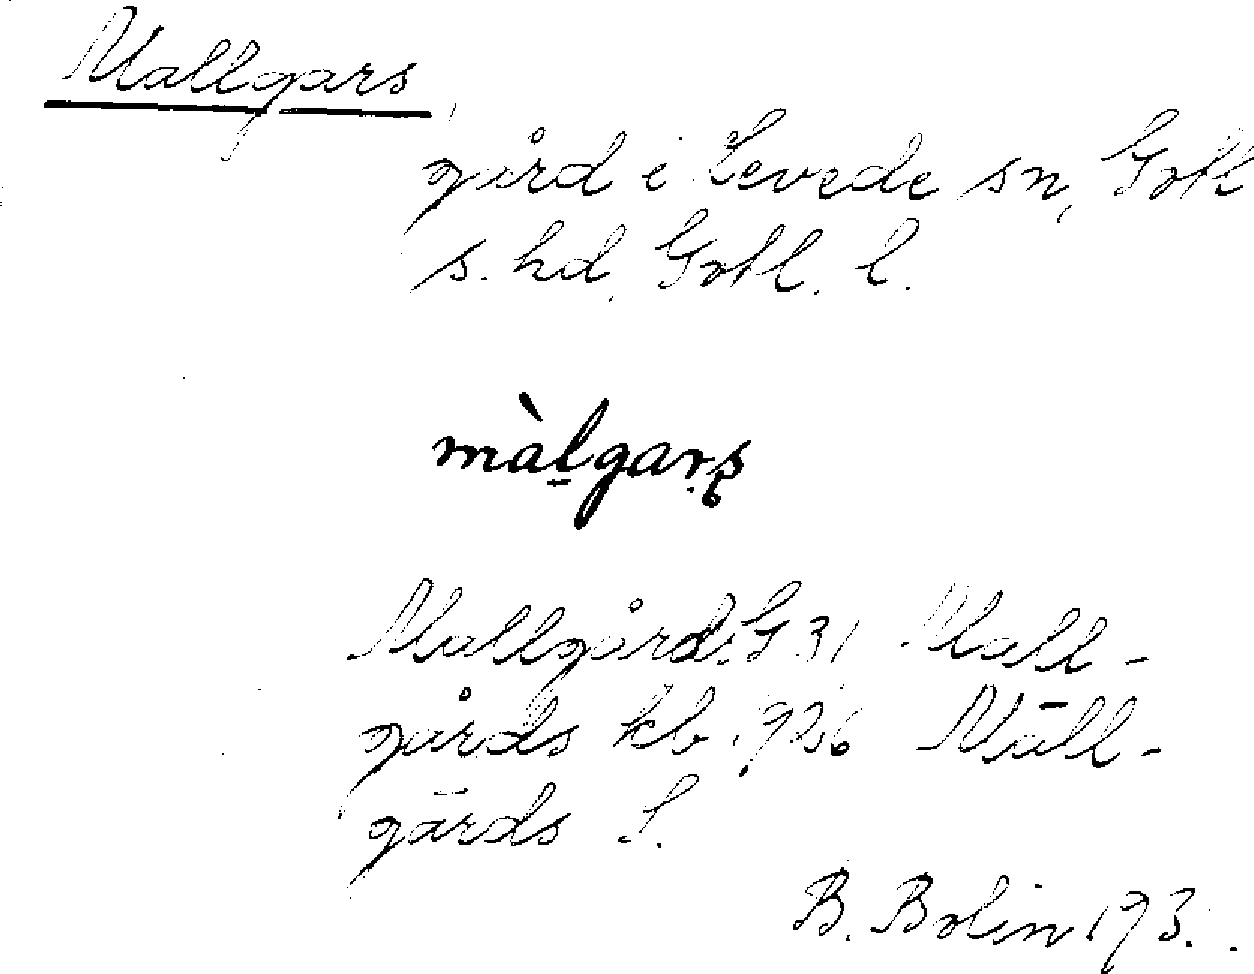 Mallgars,
gård i Levede sn, Gotl
s. hd, Gotl. l.
màlgarş
Mallgård. G 31 Mall-
gårds kb. 1926 Māll-
gārds L.
B. Bolin 193.